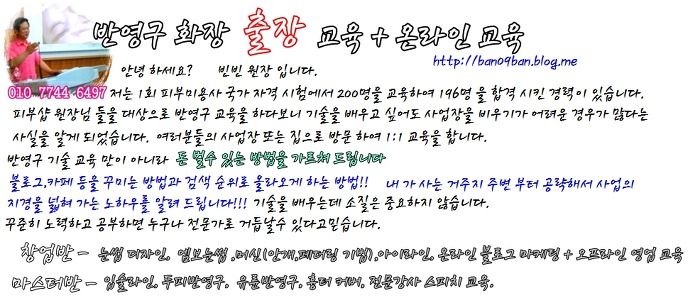 반영구 화장 출장 교육 + 온라인 교육
안녕 하세요? 빈빈 원장 입니다. http://ban09ban.blog.me
010 7744 6497
저는 1회 피부미용사 국가 자격 시험에서 200명을 교육하여 196명 을 합격 시킨 경력이 있습니다.
피부샵 원장님 들을 대상으로 반영구 교육을 하다보니 기술을 배우고 싶어도 사업장을 비우기가 어려운 경우가 많다는
사실을 알게 되었습니다. 여러분들의 사업장 또는 집으로 방문 하여 1:1 교육을 합니다.
반영구 기술 교육 만이 아니라 돈 벌수 있는 방법을 가르쳐 드립니다
블로그,카페 등을 꾸미는 방법과 검색 순위로 올라오게 하는 방법!! 내 가 사는 거주지 주변 부터 공략해서 사업의
지경을 넓혀 가는 노하우를 알려 드립니다!!! 기술을 배우는데 소질은 중요하지 않습니다.
꾸준히 노력하고 공부하면 누구나 전문가로 거듭날수 있다고믿습니다.
창업반 - 눈썹 디자인, 엠보눈썹 ,머신(안개,페더링 기법),아이라인, 온라인 블로그 마케팅 + 오프라인 영업 교육
마스터반 - 입술라인, 두피반영구, 유륜반영구, 흉터 커버, 전문강사 스피치 교육.